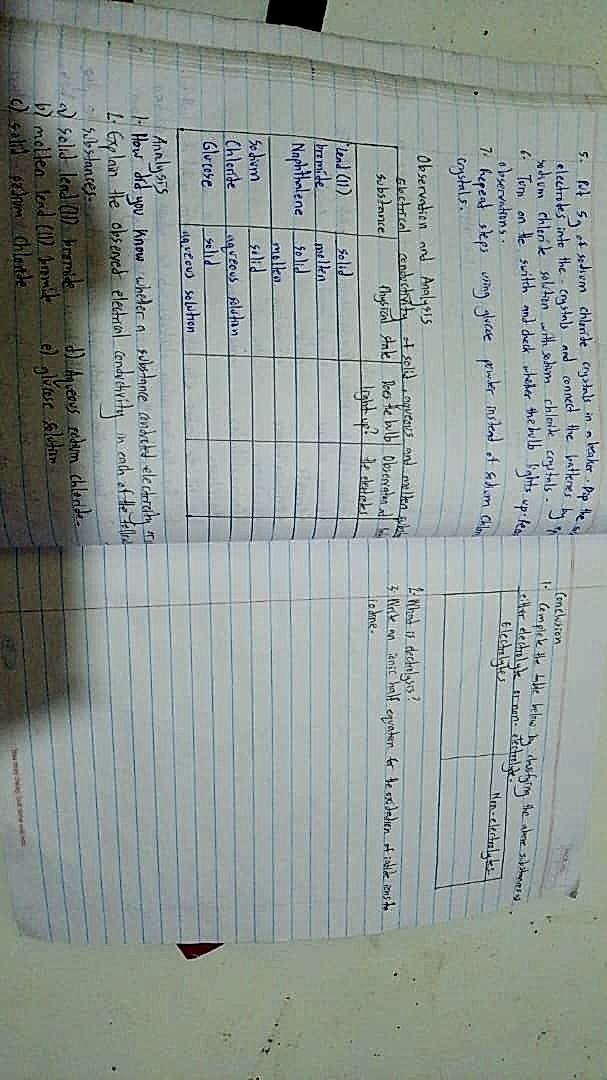 5. Put 5g of sodium chloride crystals in a beaker. Dip the
electrodes into the crystals and connect the batteries by
sodium chloride solution with sodium chloride crystals.
6. Turn on the switch and check whether the bulb lights up.
observations.
7. Repeat steps using glucose powder instead of sodium
crystals.
Observation and Analysis
Electrical conductivity of solid, aqueous and molten
substance Physical state Does the bulb Observation at
light up? the electrodes
lead (II) solid
bromide molten
Napthalene solid
molten
Sodium solid
Chloride aqueous solution
Glucose solid
aqueous solution
Analysis
1. How did you know whether a substance conducted electricity
2. Explain the observed electrical conductivity in each of the
substances.
a) solid lead (II) bromide d) Aqueous sodium chloride.
b) molten lead (II) bromide e) glucose solution
c) solid sodium chloride
Conclusion
1. Complete the table below by classifying the above substances as
either electrolyte or non-electrolyte.
Electrolytes Non-electrolytes
2. What is electrolysis?
3. Write an ionic half equation for the oxidation of iodide ions to
iodine.